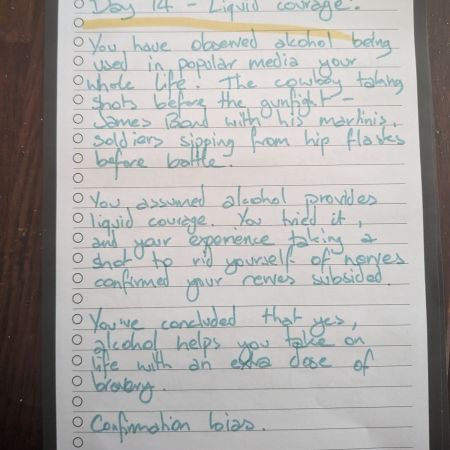 Day 14 - Liquid courage.
You have observed alcohol being
used in popular media your
whole life. The cowboy taking
shots before the gunfight -
James Bond with his martinis,
soldiers sipping from hip flasks
before battle.
You assumed alcohol provides
liquid courage. You tried it,
and your experience taking a
shot to rid yourself of nerves
confirmed your nerves subsided.
You've concluded that yes,
alcohol helps you take on
life with an extra dose of
bravery.
Confirmation bias.